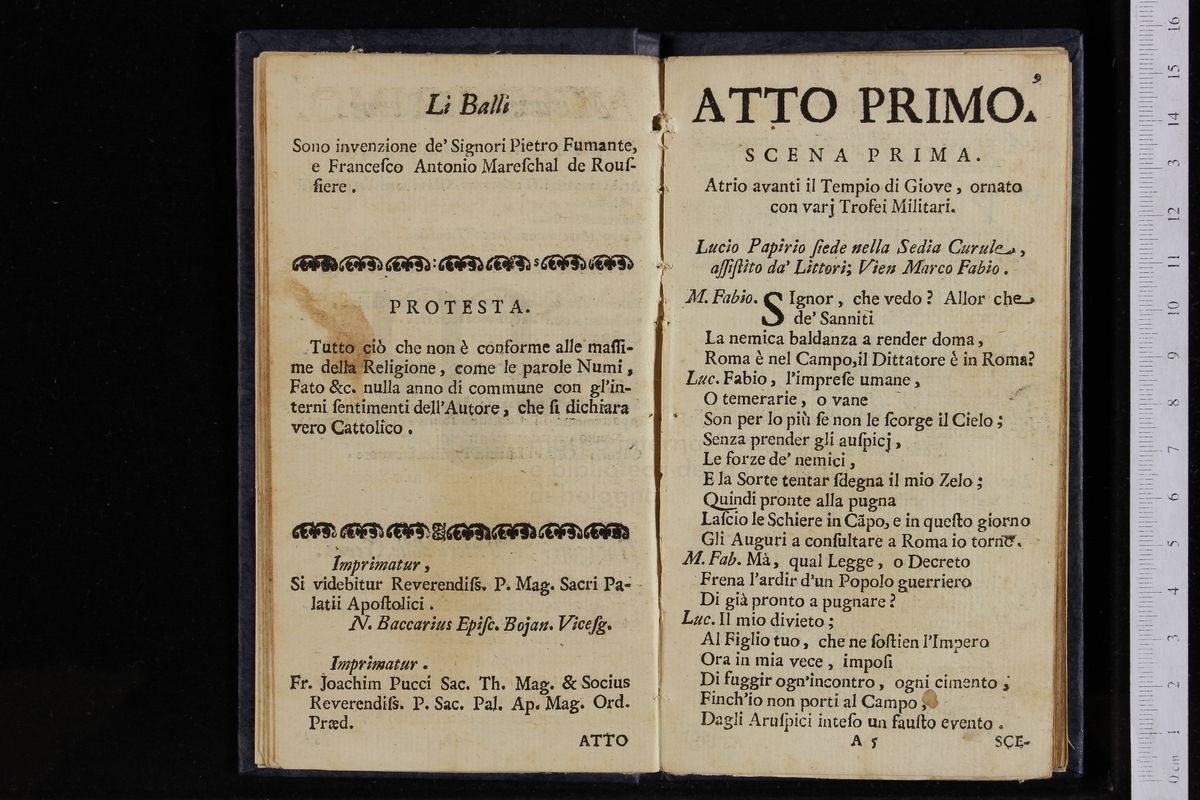 Li Balli
Sono invenzione de' Signori Pietro Fumante,
e Franceſco Antonio Mareſchal de Rouſ-
ſiere .
PROTESTA.
Tutto ciò che non è conforme alle maſſi-
me della Religione , come le parole Numi ,
Fato &c. nulla anno di commune con gl'in-
terni ſentimenti dell'Autore , che ſi dichiara
vero Cattolico .
Imprimatur ,
Si videbitur Reverendiſs. P. Mag. Sacri Pa-
latii Apoſtolici .
N. Baccarius Epiſc. Bojan. Viceſg.
Imprimatur .
Fr. Joachim Pucci Sac. Th. Mag. & Socius
Reverendiſs. P. Sac. Pal. Ap. Mag. Ord.
Præd.
ATTO
9
ATTO PRIMO.
SCENA PRIMA.
Atrio avanti il Tempio di Giove , ornato
con varj Trofei Militari.
Lucio Papirio ſiede nella Sedia Curule ,
aſſiſtito da' Littori; Vien Marco Fabio .
M. Fabio. SIgnor , che vedo ? Allor che
de' Sanniti
La nemica baldanza a render doma ,
Roma è nel Campo,il Dittatore è in Roma?
Luc. Fabio , l'impreſe umane ,
O temerarie , o vane
Son per lo più ſe non le ſcorge il Cielo ;
Senza prender gli auſpicj ,
Le forze de' nemici ,
E la Sorte tentar ſdegna il mio Zelo ;
Quindi pronte alla pugna
Laſcio le Schiere in Cãpo, e in queſto giorno
Gli Auguri a conſultare a Roma io torno.
M. Fab. Mà , qual Legge , o Decreto
Frena l'ardir d'un Popolo guerriero
Di già pronto a pugnare ?
Luc. Il mio divieto ;
Al Figlio tuo , che ne ſoſtien l'Impero
Ora in mia vece , impoſi
Di fuggir ogn'incontro , ogni cimento ;
Finch'io non porti al Campo ,
Dagli Aruſpici inteſo un fauſto evento .
A 5 SCE-
0 cm 1 2 3 4 5 6 7 8 9 10 11 12 13 14 15 16